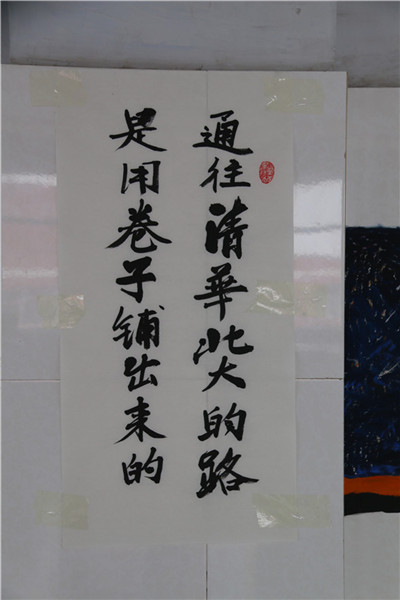 通往清華北大的路
是用卷子铺出来的